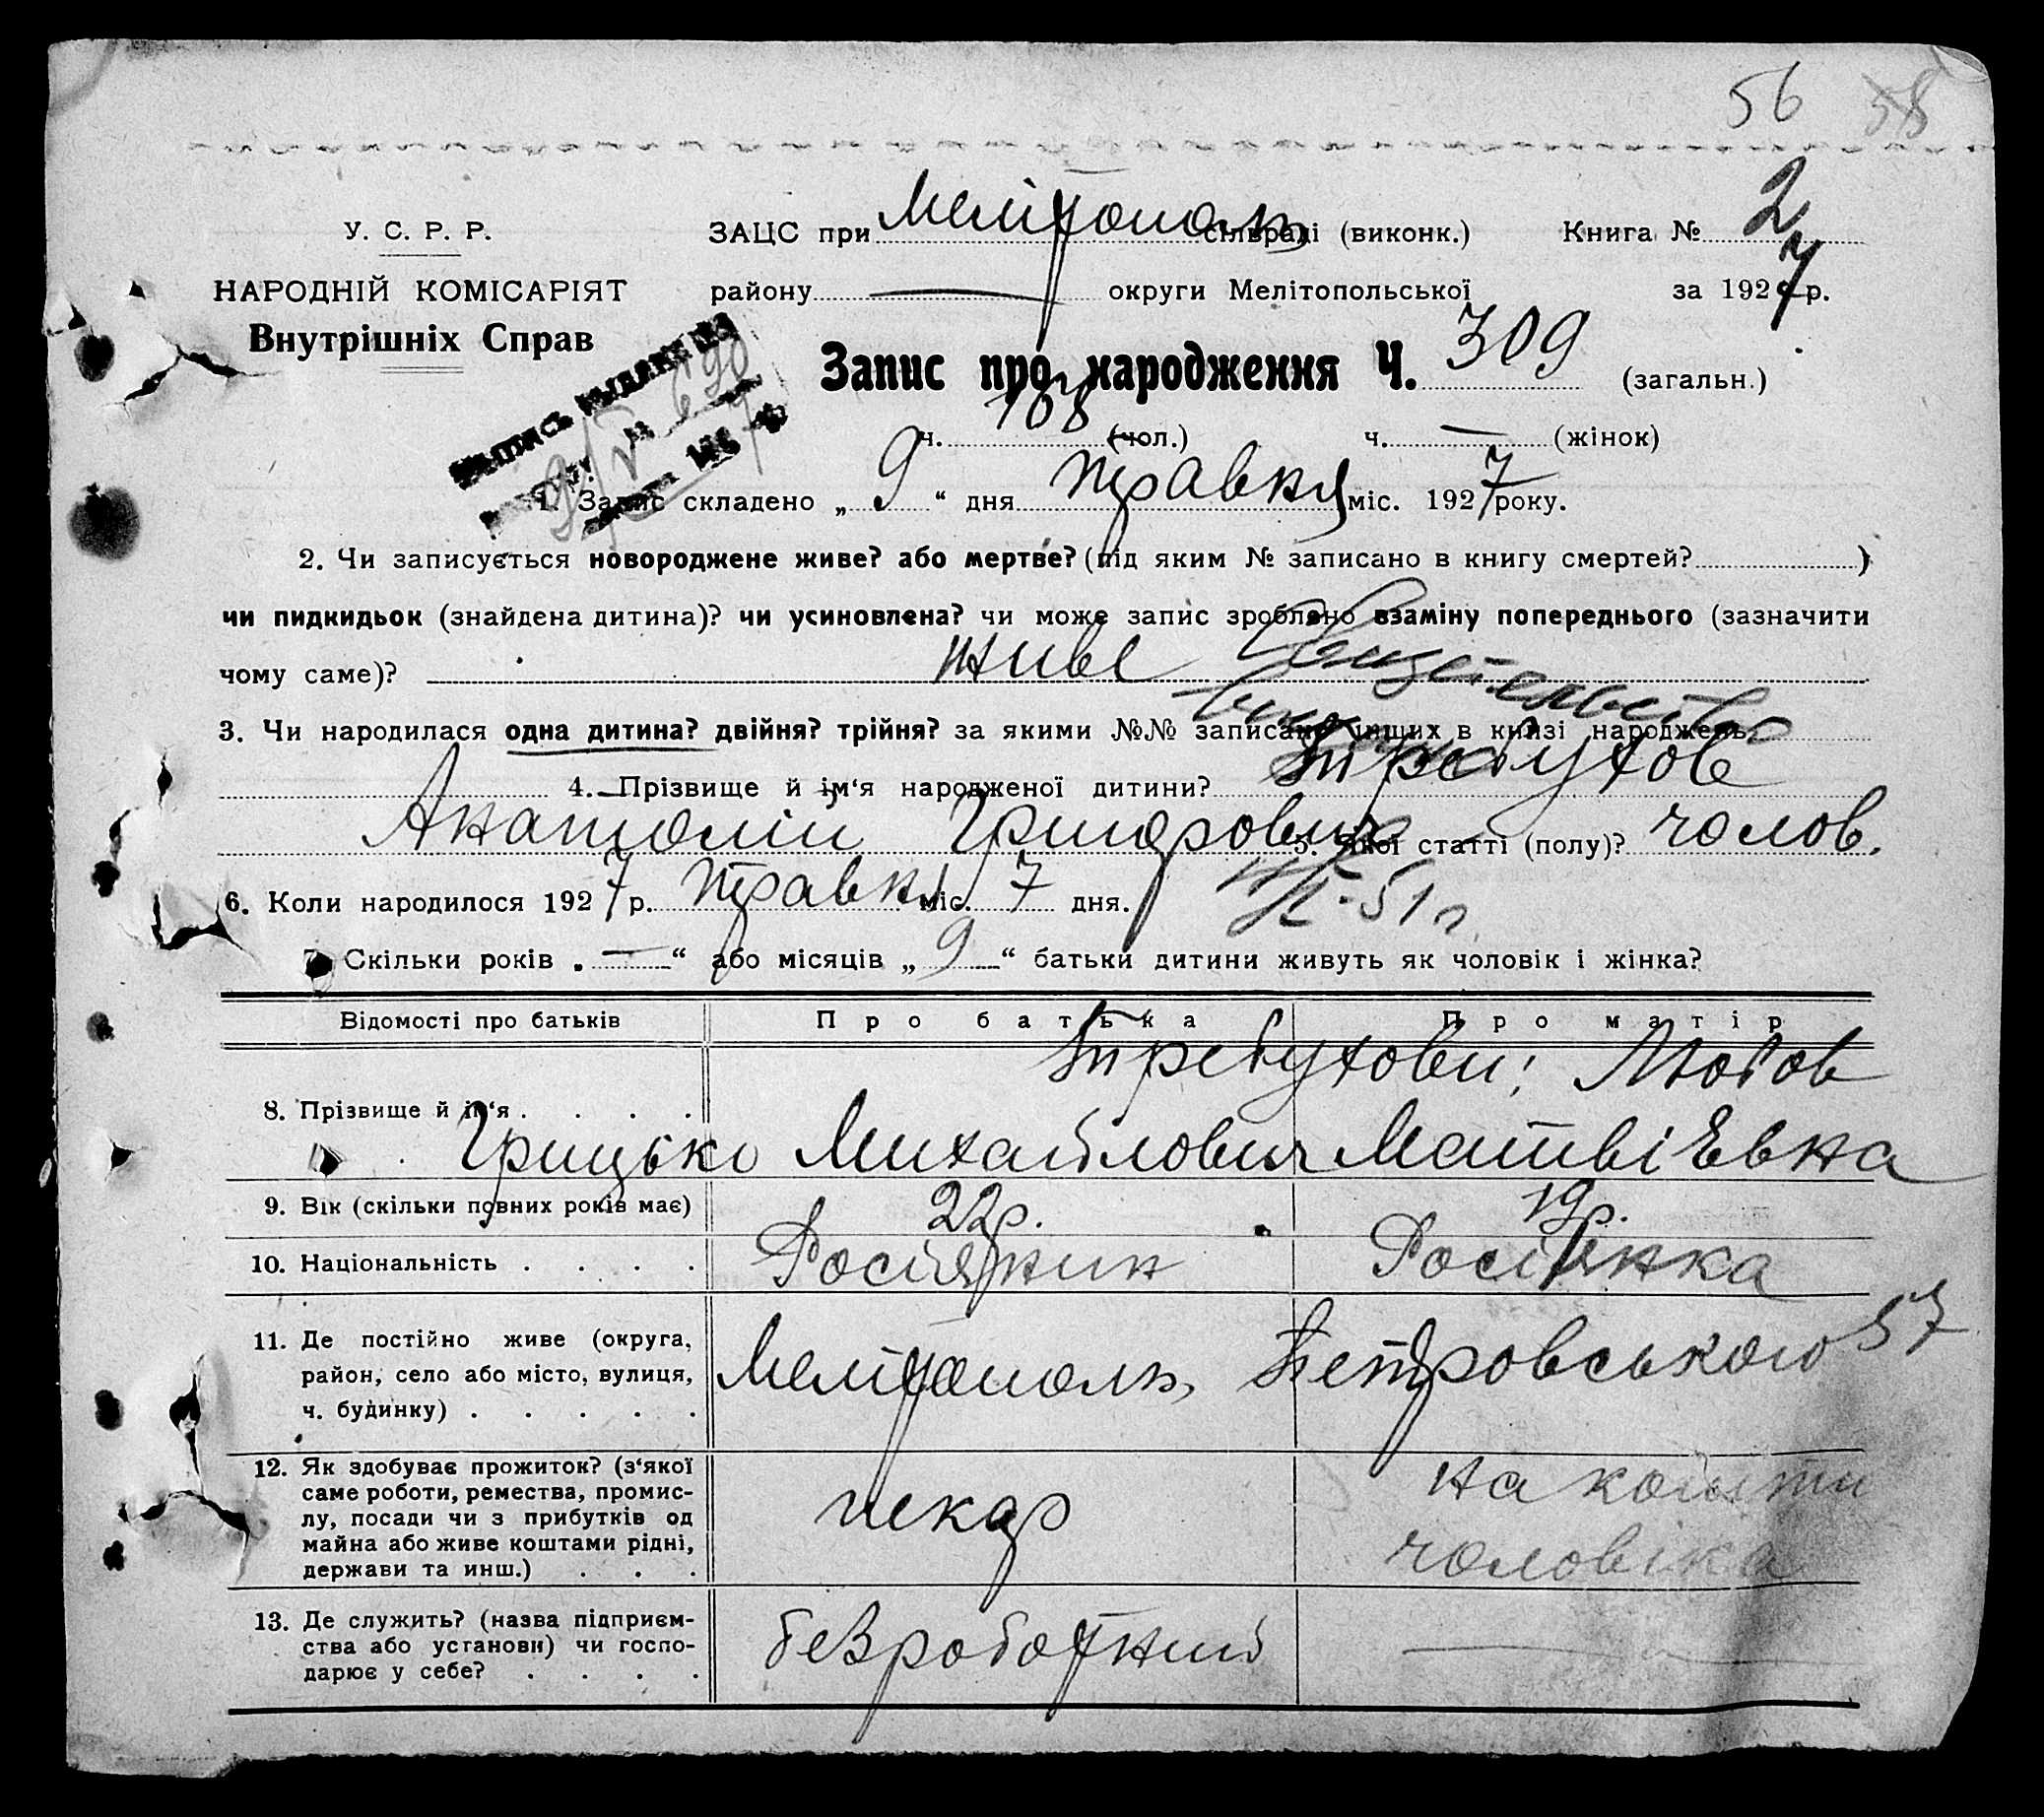 56 58
У. С. Р. Р. ЗАЦС при Мелітополь сільраді (виконк.) Книга № 2
НАРОДНІЙ КОМІСАРІЯТ району — округи Мелітопольської за 1927 р.
Внутрішніх Справ
Запис про народження Ч. 309 (загальн.)
ч. 168 (чол.) ч. — (жінок)
1. Запис складено „ 9 “ дня травня міс. 1927 року.
2. Чи записується новороджене живе? або мертве? (під яким № записано в книгу смертей? )
чи пидкидьок (знайдена дитина)? чи усиновлена? чи може запис зроблено взаміну попереднього (зазначити
чому саме)? живе
Свидетельство
3. Чи народилася одна дитина? двійня? трійня? за якими №№ записано інших в книзі народжень
4. Прізвище й ім‘я народженої дитини? Требухов
Анатолій Григорович 5. Якої статті (полу)? чолов.
6. Коли народилося 1927 р. травня міс. 7 дня.
51 г.
7. Скільки років „ — “ або місяців „ 9 “ батьки дитини живуть як чоловік і жінка?
Відомості про батьків Про батька Про матір
Требухови: Любов
8. Прізвище й ім‘я . . . .
Грицько Михайлович Матвіївна
9. Вік (скільки повних років має) 22р. 19р.
10. Національність . . . . Росіянин Росіянка
11. Де постійно живе (округа,
район, село або місто, вулиця,
ч. будинку) . . . . . Мелітополь, Петровського 57
12. Як здобуває прожиток? (з‘якої
саме роботи, ремества, промис-
лу, посади чи з прибутків од
майна або живе коштами рідні,
держави та инш.) . . . пекар на кошти
чоловіка
13. Де служить? (назва підприєм-
ства або установи) чи госпо-
дарює у себе? . . . . безроботний —